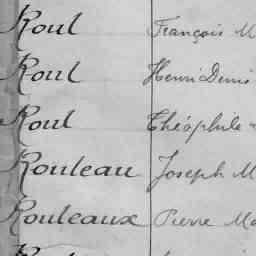 Roul François M
Roul Henri Denis
Roul Théophile
Rouleau Joseph M
Rouleaux Pierre Ma